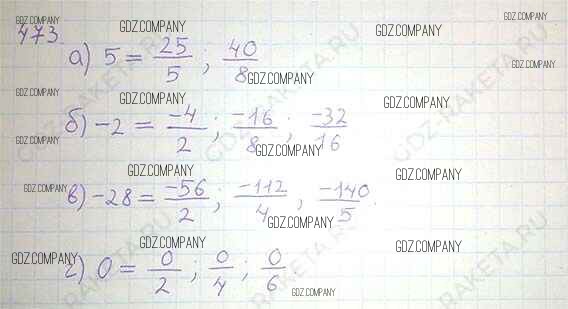 GDZ.COMPANY GDZ.COMPANY GDZ.COMPANY GDZ.COMPANY
473.
а) 5 = 25/5; 40/8
GDZ.COMPANY GDZ.COMPANY GDZ.COMPANY
GDZ.COMPANY GDZ.COMPANY
б) -2 = -4/2; -16/8; -32/16
GDZ.COMPANY GDZ.COMPANY
GDZ.COMPANY GDZ.COMPANY GDZ.COMPANY
в) -28 = -56/2; -112/4, -140/5.
GDZ.COMPANY
GDZ.COMPANY GDZ.COMPANY GDZ.COMPANY
г) 0 = 0/2; 0/4; 0/6
GDZ.COMPANY
GDZ-RAKETA.RU